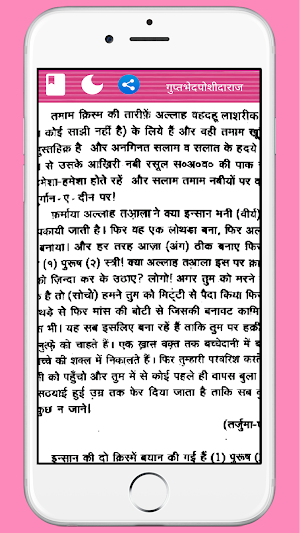 गुप्तभेदपोशीदाराज
तमाम क़िस्म की तारीफ़ें अल्लाह वहदहू लाशरीक
। कोई साझी नहीं है) के लिये हैं और वही तमाम खू
मुस्तहिक़ है और अनगिनत सलाम व सलात के हदये
। से उसके आख़िरी नबी रसूल स०अ०व० की पाक
मेशा-हमेशा होते रहें और सलाम तमाम नबीयों पर व
र्गान-ए-दीन पर!
फ़र्माया अल्लाह तआ़ला ने क्या इन्सान मनी (वीर्य)
पकायी जाती है। फिर यह एक लोथड़ा बना, फिर अल
बनाया। और हर तरह आज़ा (अंग) ठीक बनाए फिर
(१) पुरूष (२) स्त्री! क्या अल्लाह तआ़ला इस पर क़ा
को ज़िन्दा कर के उठाए? लोगो! अगर तुम को मरने
क है तो (सोचो) हमने तुम को मिट्टी से पैदा किया फि
थड़े से फिर मांस की बोटी से जिसकी बनावट कामि
त भी। यह सब इसलिए बना रहे हैं ताकि तुम पर हक़ी
नुत्फ़े को चाहते हैं। एक ख़ास वक़्त तक बच्चेदानी में
च्चे की शक्ल में निकालते हैं। फिर तुम्हारी परवरिश करते
नी को पहुँचो और तुम में से कोई पहले ही वापस बुला
सठयाई हुई उम्र तक फेर दिया जाता है ताकि सब
कुछ न जाने।
(तर्जुमा-
इन्सान की दो क़िस्में बयान की गई हैं (1) पुरूष (